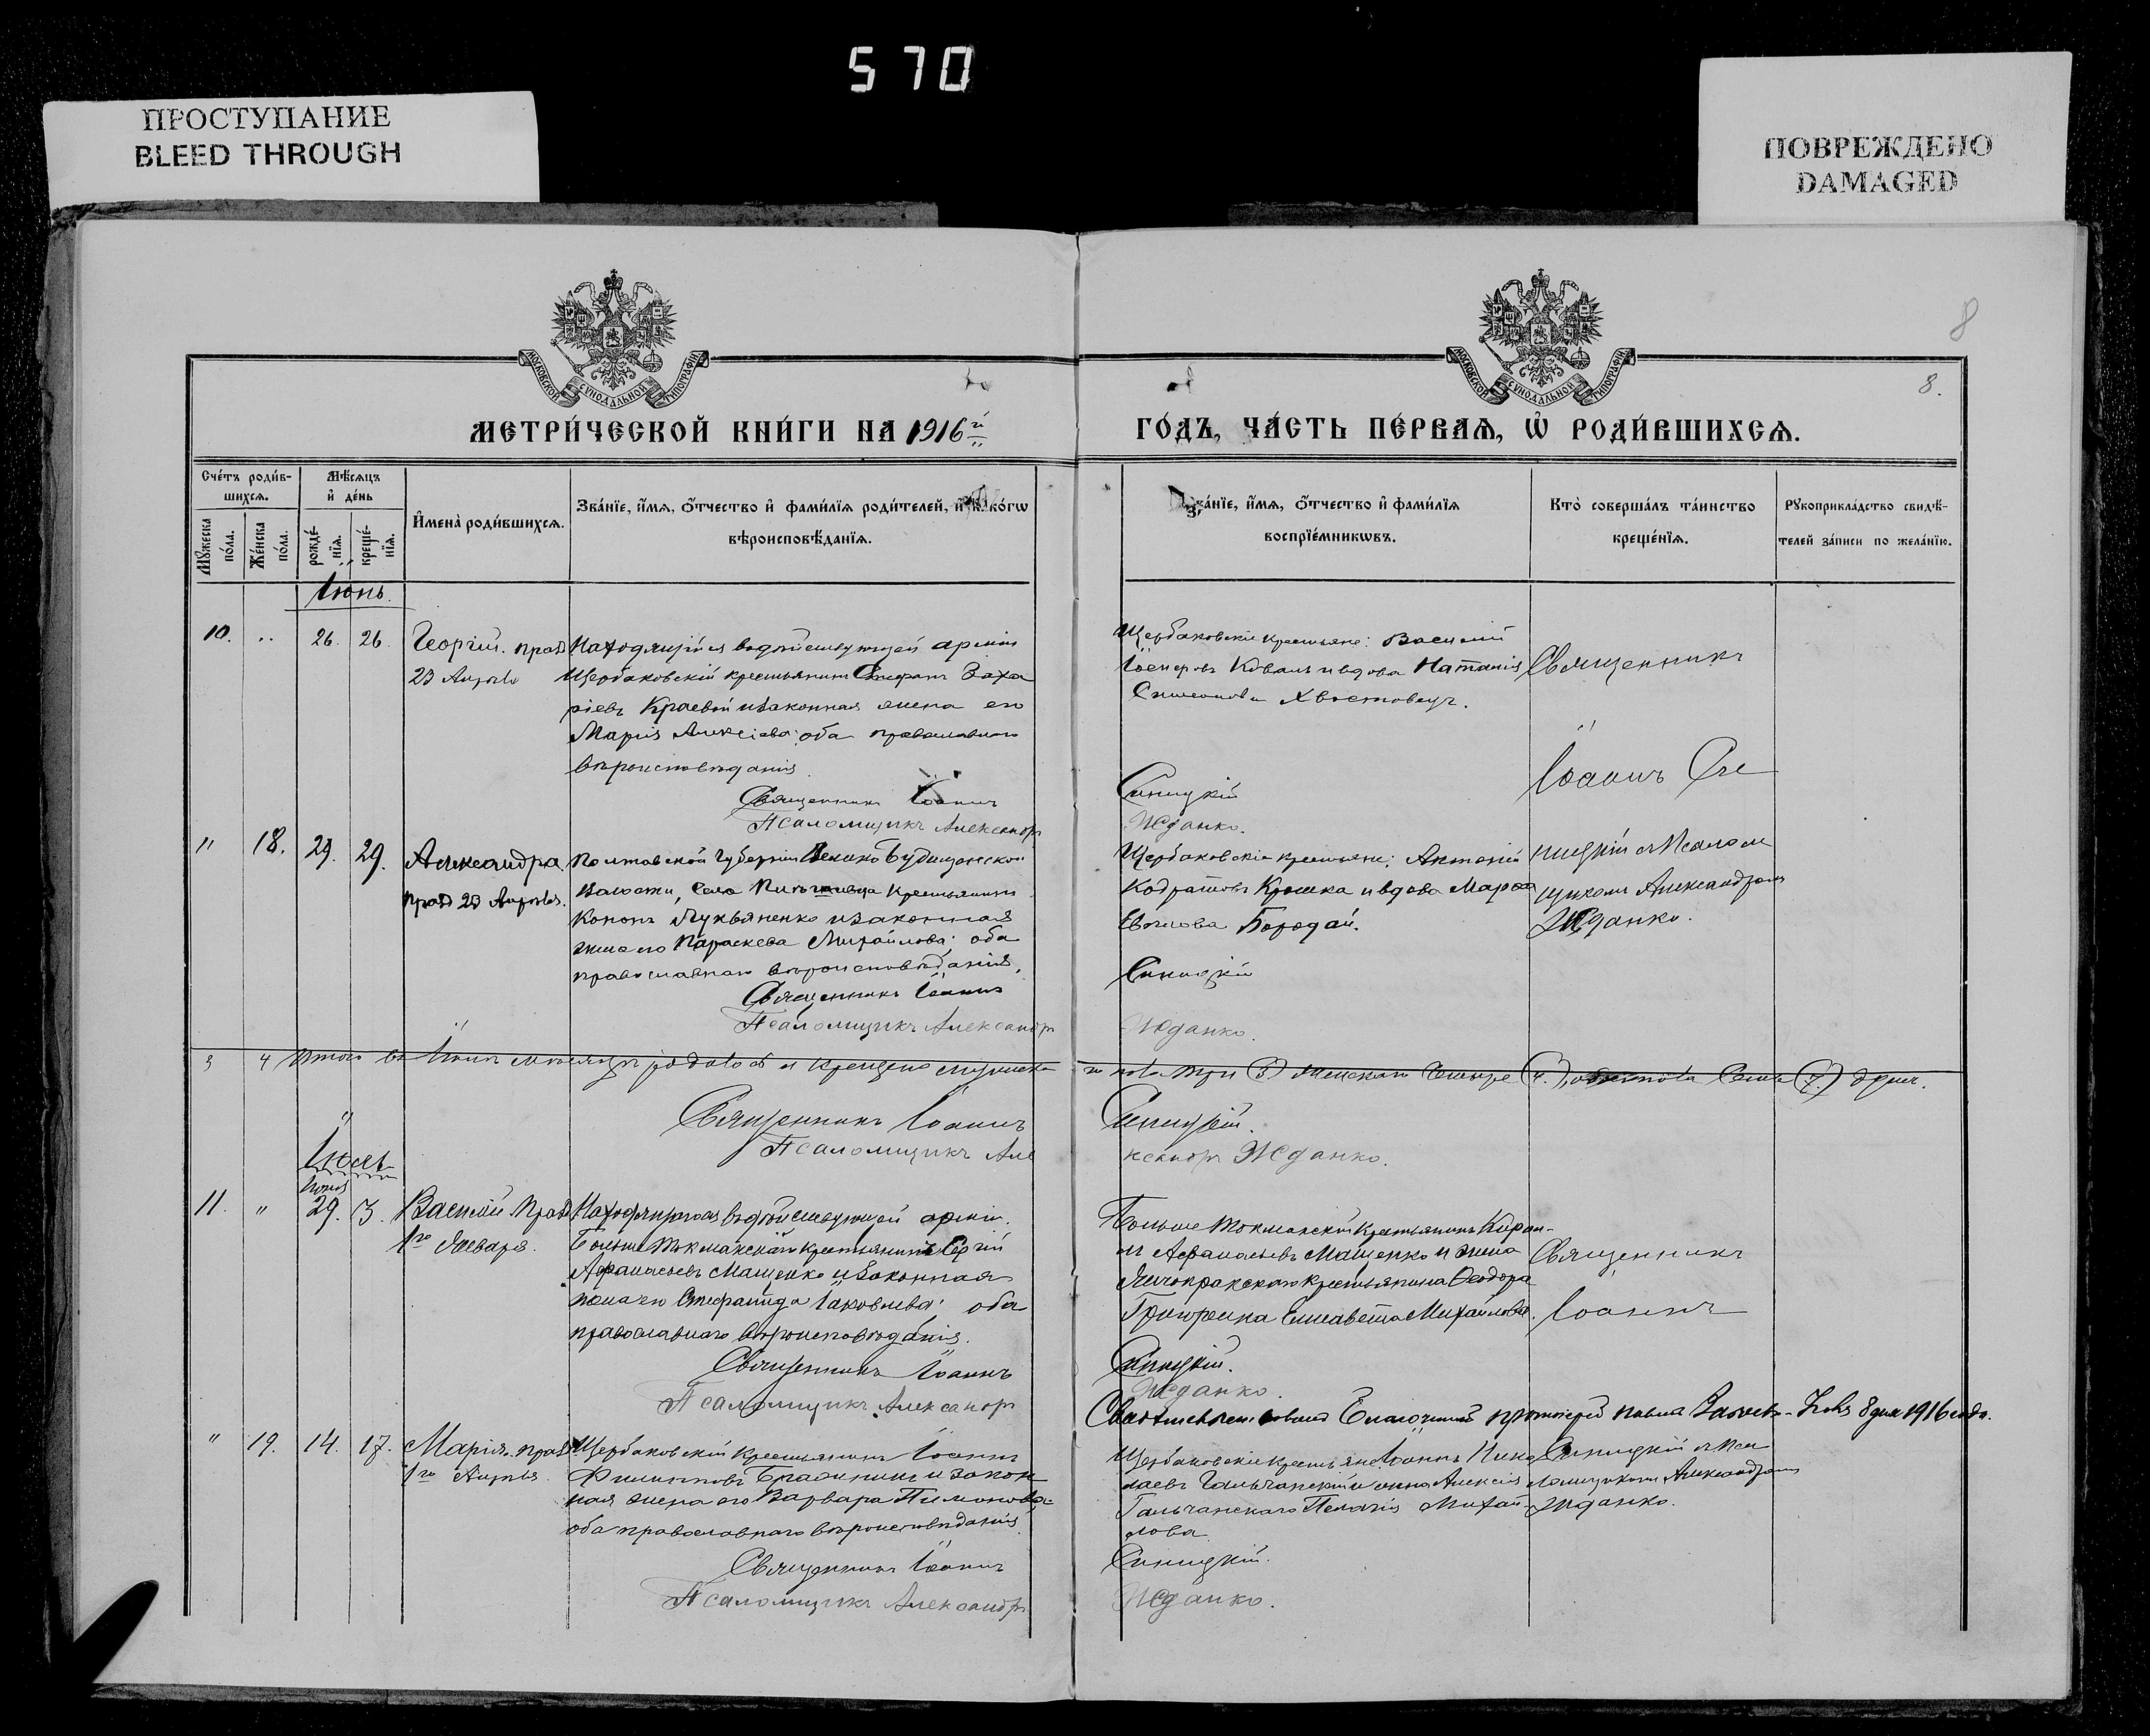 570
ПРОСТУПАНИЕ
BLEED THROUGH
ПОВРЕЖДЕНО
DAMAGED
8
8.
МОСКОВСКОЙ СѴНОДАЛЬНОЙ ТИПОГРАФІИ
МОСКОВСКОЙ СѴНОДАЛЬНОЙ ТИПОГРАФІИ
МЕТРИ́ЧЕСКОЙ КНИ́ГИ НА 1916й
ГО́ДЪ, ЧА́СТЬ ПЕ́РВАѦ, Ѡ҆ РОДИ́ВШИХСѦ.
Сче́тъ роди́в-
шихсѧ.
Мꙋ́жеска
по́ла.
Же́нска
по́ла.
Мѣ́сѧцъ
и҆ де́нь
рожде́-
нїѧ.
креще́-
нїѧ.
И҆мена̀ роди́вшихсѧ.
Зва́нїе, и҆́мѧ, ѻ҆́тчество и҆ фами́лїѧ роди́телей, и҆ како́гѡ
вѣроисповѣ́данїѧ.
Зва́нїе, и҆́мѧ, ѻ҆́тчество и҆ фами́лїѧ
воспрїе́мникѡвъ.
Кто̀ соверша́лъ та́инство
креще́нїѧ.
Рꙋкоприкла́дство свидѣ́-
телей за́писи по жела́нїю.
Іюнь.
10. " 26. 26. Георгій. празд
23 Апрѣля
Находящійся въ дѣйствующей арміи
Щербаковскій крестьянинъ Стефанъ Заха
ріевъ Краевой и законная жена его
Марія Алексіева; оба православнаго
вѣроисповѣданія.
Священникъ Іоаннъ
Псаломщикъ Александръ
Щербаковскіе крестьяне: Василій
Коваль и вдова Наталія
Хвостовецъ.
Синицкій
Жданко.
Священникъ
Іоаннъ Си
" 18. 29. 29. Александра
празд 23 Апрѣля.
Полтавской губерніи Велико Будищанской
Волости, Села крестьянинъ
Кононъ Лукьяненко и законная
жена его Параскева Михайлова; оба
православнаго вѣроисповѣданія.
Священникъ Іоаннъ
Псаломщикъ Александръ
Щербаковскіе крестьяне: Антоній
Кодратовъ Крошка и вдова Марѳа
Бородай.
Синицкій
Жданко.
ницкій съ Псалом
щикомъ Александромъ
Жданко.
3 4 Итого въ Іюнѣ мѣсяцѣ родилось и крещено мужска
го пола три (3) женскаго Четыре (4.), обоего пола Семь (7.) душъ.
Священникъ Іоаннъ
Псаломщикъ Але
Синицкій.
ксандръ Жданко.
Іюль
Іюня
11. " 29. 3. Василій. празд
1го Января.
Находящагося въ дѣйствующей арміи
Больше Токмакскаго крестьянина Сергій
Афанасьевъ Мащенко и законная
жена его Стефанида Іаковлева; оба
православнаго вѣроисповѣданія.
Священникъ Іоаннъ
Псаломщикъ Александръ
Больше Токмакскій крестьянинъ
Афанасьевъ Мащенко и жена
крестьянина Ѳеодора
Григоренка Елисавета Михайлова.
Синицкій.
Жданко.
Священникъ
Іоаннъ
Свидѣтельствовалъ Благочинный протоіерей Павелъ 8 дня 1916 года.
" 19. 14. 17. Марія. празд
1го Апрѣля
Щербаковскій крестьянинъ Іоаннъ
Филипповъ и закон
ная жена его Варвара Пимонова;
оба православнаго вѣроисповѣданія.
Священникъ Іоаннъ
Псаломщикъ Александръ
Щербаковскіе крестьяне: Іоаннъ Нико
лаевъ Гальчанскій и жена Алексія
Гальчанскаго Пелагія Михай-
лова
Синицкій.
Жданко.
Синицкій съ Пса
ломщикомъ Александромъ
Жданко.